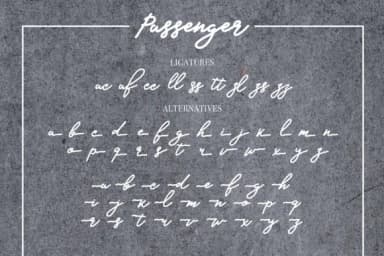 Passenger
LIGATURES
ac af ee ll ss tt
ALTERNATIVES
a b c d e f g h i j k l m n
o p q r s t u v w x y z
a b c d e f g h
i j k l m n o p q
r s t u v w x y z